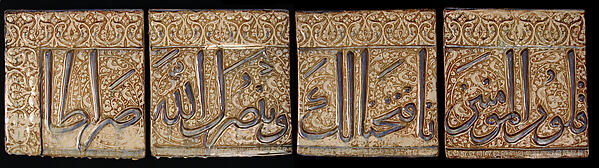 قلوب المومنين نا فتحنا لك وينصرك الله صراطا